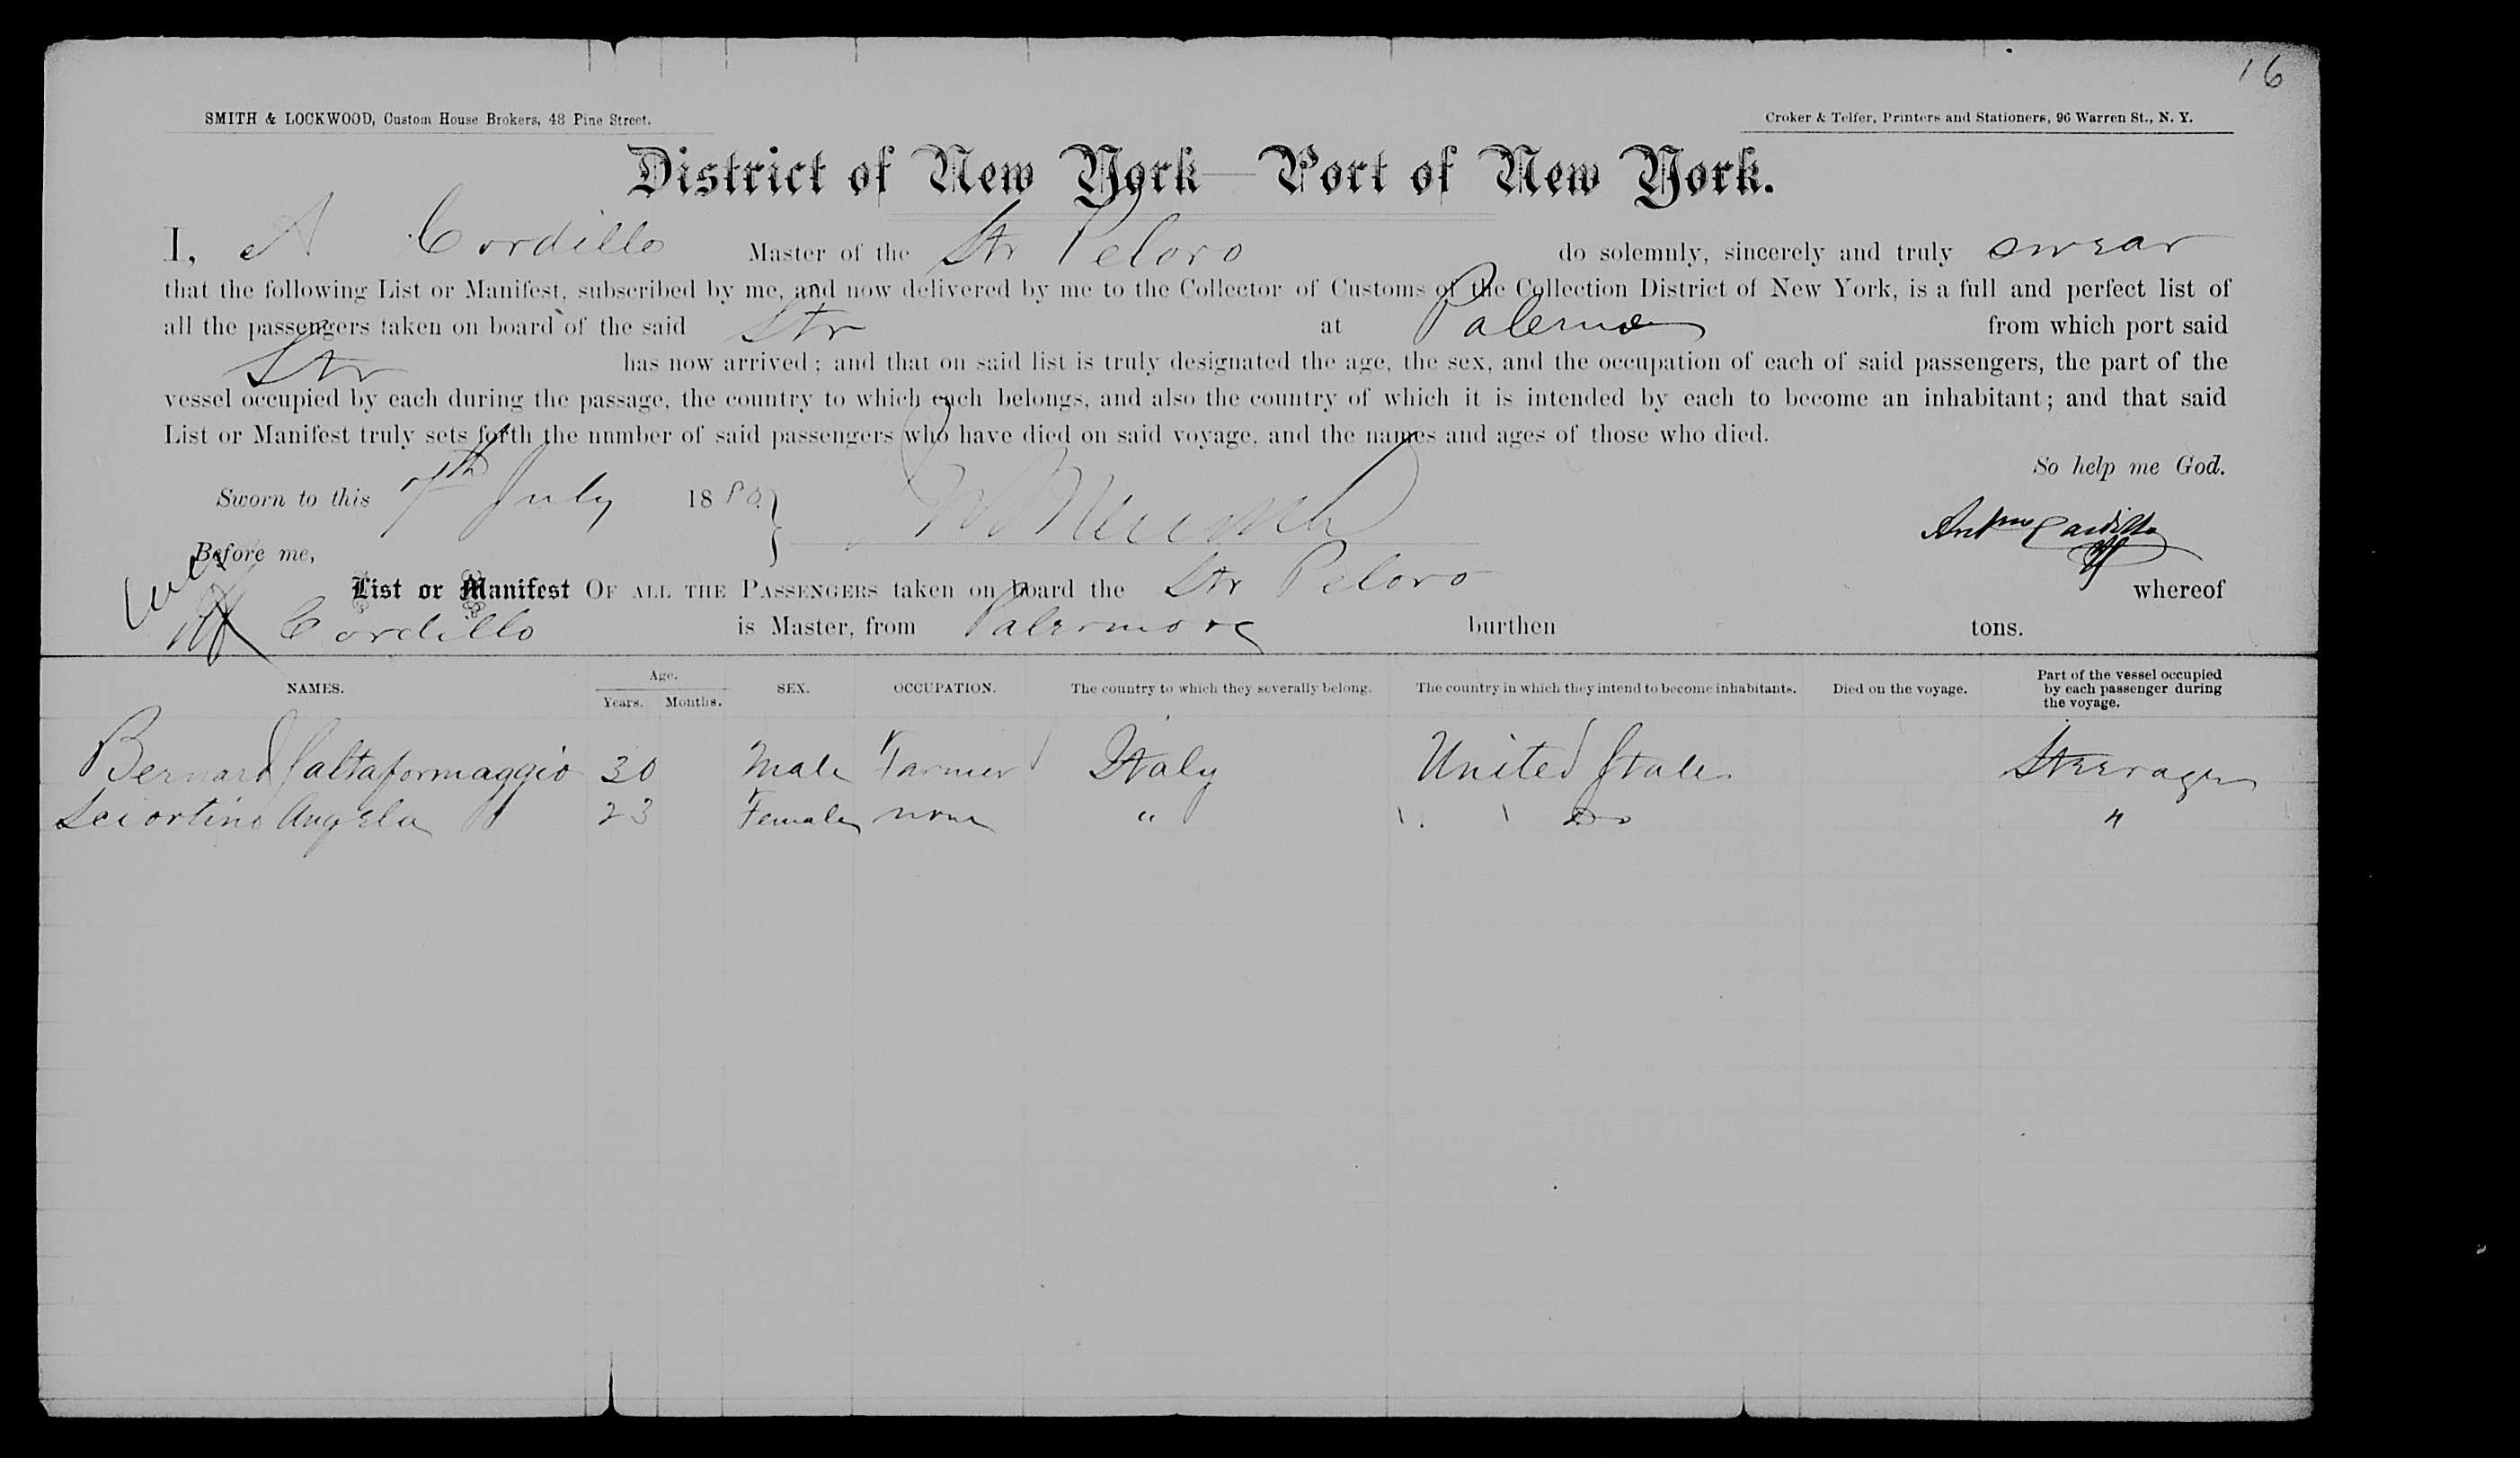 16
SMITH & LOCKWOOD, Custom House Brokers, 48 Pine Street.
Croker & Telfer, Printers and Stationers, 96 Warren St., N. Y.
District of New York—Port of New York.
I, A Cordillo Master of the Str Peloro do solemnly, sincerely and truly swear
that the following List or Manifest, subscribed by me, and now delivered by me to the Collector of Customs of the Collection District of New York, is a full and perfect list of
all the passengers taken on board of the said Str at Palermo from which port said
Str has now arrived; and that on said list is truly designated the age, the sex, and the occupation of each of said passengers, the part of the
vessel occupied by each during the passage, the country to which each belongs, and also the country of which it is intended by each to become an inhabitant; and that said
List or Manifest truly sets forth the number of said passengers who have died on said voyage, and the names and ages of those who died.
So help me God.
Sworn to this 7th July 1880.
Before me,
List or Manifest OF ALL THE PASSENGERS taken on board the Str Peloro whereof
Cordillo is Master, from Palermo burthen tons.
NAMES. Age. Years. Months. SEX. OCCUPATION. The country to which they severally belong. The country in which they intend to become inhabitants. Died on the voyage. Part of the vessel occupied by each passenger during the voyage.
Bernard Caltaformaggio 30 Male Farmer Italy United States Steerage
Sciortino Angela 23 Female none " Do "